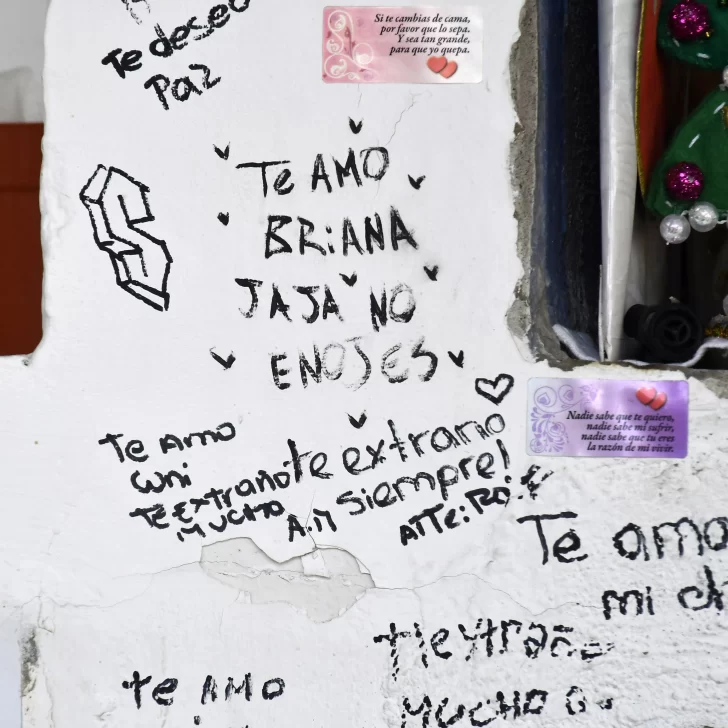 Te deseo
Paz
Si te cambias de cama,
por favor que lo sepa.
Y sea tan grande,
para que yo quepa.
Te AMO
BRiANA
JAJA NO
ENOJES
Nadie sabe que te quiero,
nadie sabe mi sufrir,
nadie sabe que tu eres
la razón de mi vivir.
Te Amo
Wni
TE Extraño
MUCHO
A.M
te extraño
Siempre!
ATTE: RO.
Te amo
mi ch
MUCHO
te AMO